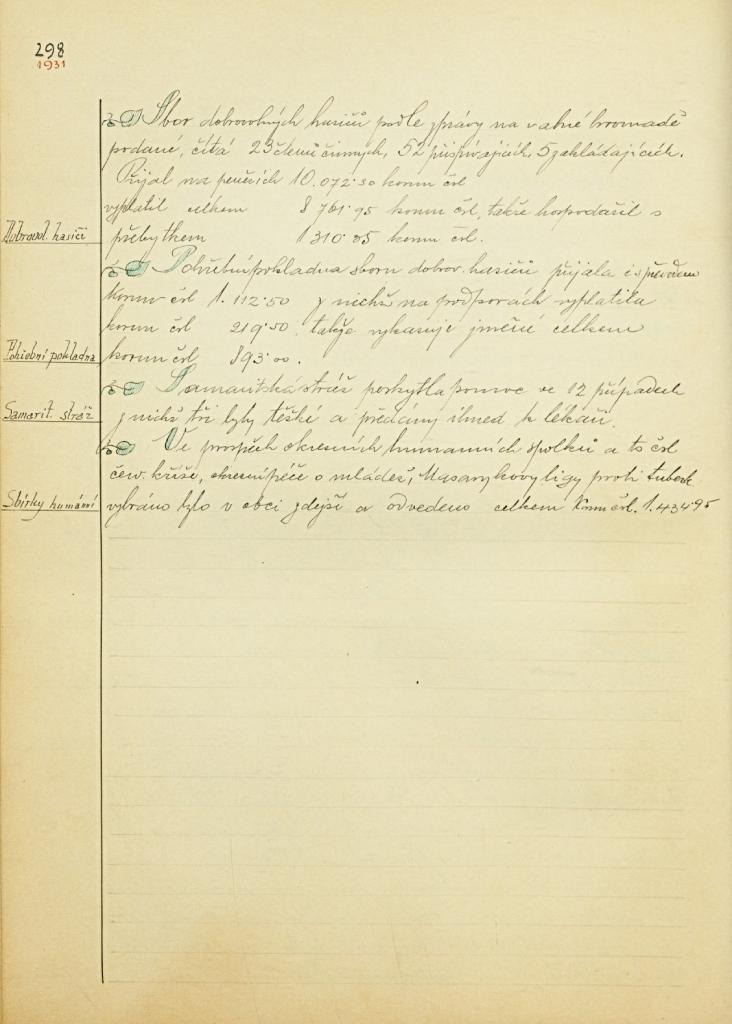 298
1931
Sbor dobrovolných hasičů podle zprávy na valné hromadě
podané, čítá 23 členů činných, 52 přispívajících, 5 zakládajících.
Přijal na penězích 10.072·30 korun čsl
vyplatil celkem 8 761·95 korun čsl, takže hospodařil s
Dobrovol. hasiči
přebytkem 1 310·35 korun čsl.
Pohřební pokladna sboru dobrov. hasičů přijala i s převodem
Korun čsl 1.112·50 z nichž na podporách vyplatila
korun čsl 219·50, takže vykazuje jmění celkem
Pohřební pokladna
korun čsl 893·00.
Samaritská stráž poskytla pomoc ve 12 případech
Samarit. stráž
z nichž tři byly těžké a předány ihned k lékaři.
Ve prospěch okresních humanních spolků a to čsl
červ. kříže, okresní péče o mládež, Masarykovy ligy proti tuberk.
Sbírky humánní
vybráno bylo v obci zdejší a odvedeno celkem Korun čsl. 1.434·95